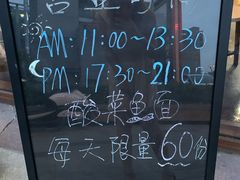 AM:11:00~13:30
PM:17:30~21:00
酸菜鱼面
每天限量60份